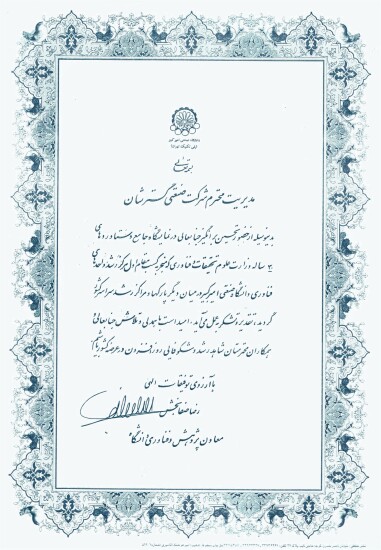 دانشگاه صنعتی امیرکبیر
(پلی تکنیک تهران)
بسمه تعالی
مدیریت محترم شرکت صنعتی گستر شان
بدینوسیله از حضور تحسین برانگیز جنابعالی در نمایشگاه جامع دستاوردهای
۳۰ ساله وزارت علوم تحقیقات و فناوری که منجر به کسب مقام اول مرکز رشد واحدهای
فناوری دانشگاه صنعتی امیرکبیر در میان دیگر پارکها و مراکز رشد سراسر کشور
گردید، تقدیر و تشکر بعمل می آید. امید است با همدلی و تلاش جنابعالی و
همکاران محترمتان شاهد رشد و شکوفائی روزافزون در عرصه کشور باشیم
با آرزوی توفیقات الهی
رضا صفابخش
معاون پژوهش و فناوری دانشگاه